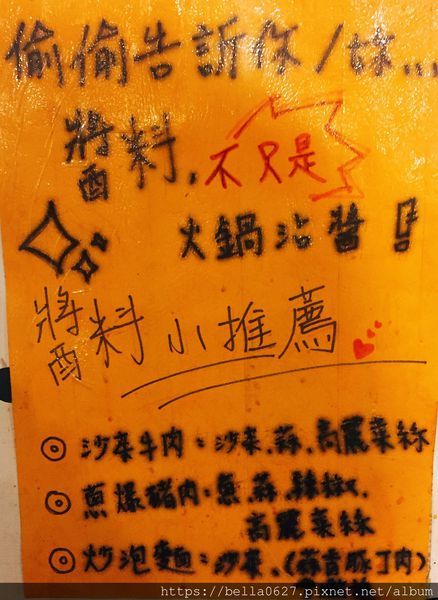 偷偷告訴你/妹...
醬料，不只是
火鍋沾醬！
醬料小推薦
◎ 沙茶牛肉：沙茶、蒜、高麗菜絲
◎ 蔥爆豬肉：蔥、蒜、辣椒、
高麗菜絲
◎ 炒泡麵：沙茶、(蒜香豚丁肉)
https://bella0627.pixnet.net/album